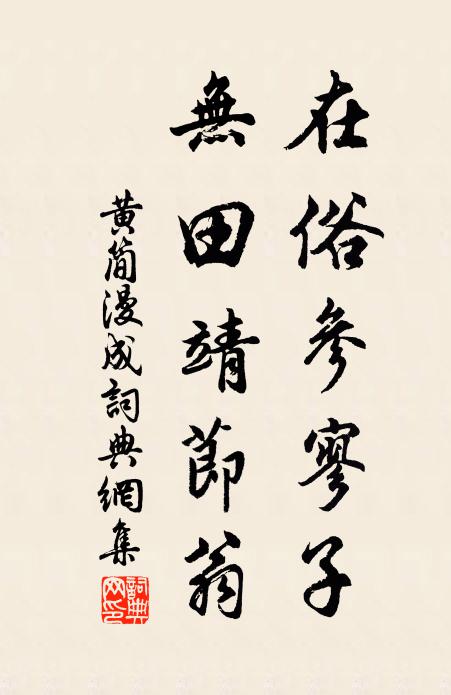 在俗參寥子
無田靖節翁
黄简漫成詞典網集
詞典网印